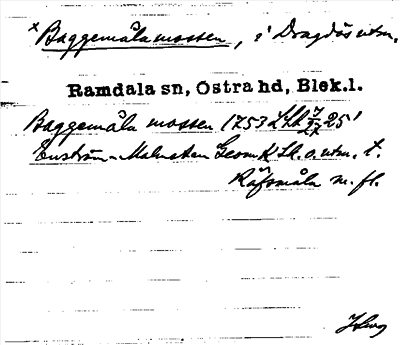 × Baggemålamossen, i Dragsös utm.
Ramdala sn, Östra hd, Blek.l.
Baggemåla mossen 1753 LSA 25
Enström-Malmsten Geom K Sk. o. utm. t.
Räfsmåla m. fl.